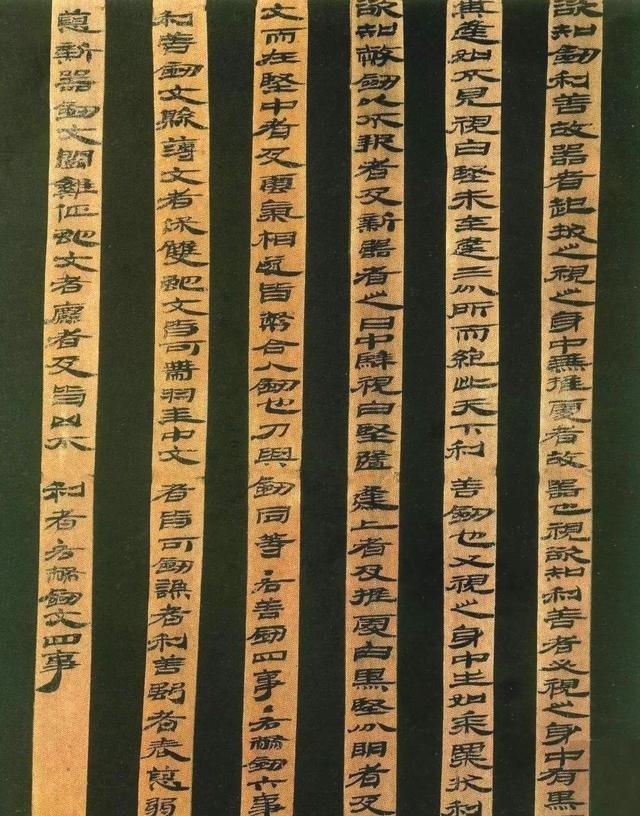 欲知劍利善故器者起拔之視之身中無推處者故器也視欲知利善者必視之身中有黑
其逢如不見視白堅未至逢三分所而絕此天下利善劍也又視之身中生如黍粟狀利
欲知幣劍以不報者及新器者之日中騂視白堅隨逢上者及推處白黑堅分明者及
文而在堅中者及雲氣相遂皆幣合人劍也刀與劍同等・右善劍四事・右幣劍六事
利善劍文縣薄文者保雙蛇文皆可帶羽圭中文者皆可劍謙者利善強者表惡弱
惡新器劍文鬭雞征蛇文者麤者及皆凶不利者・右幣劍文四事